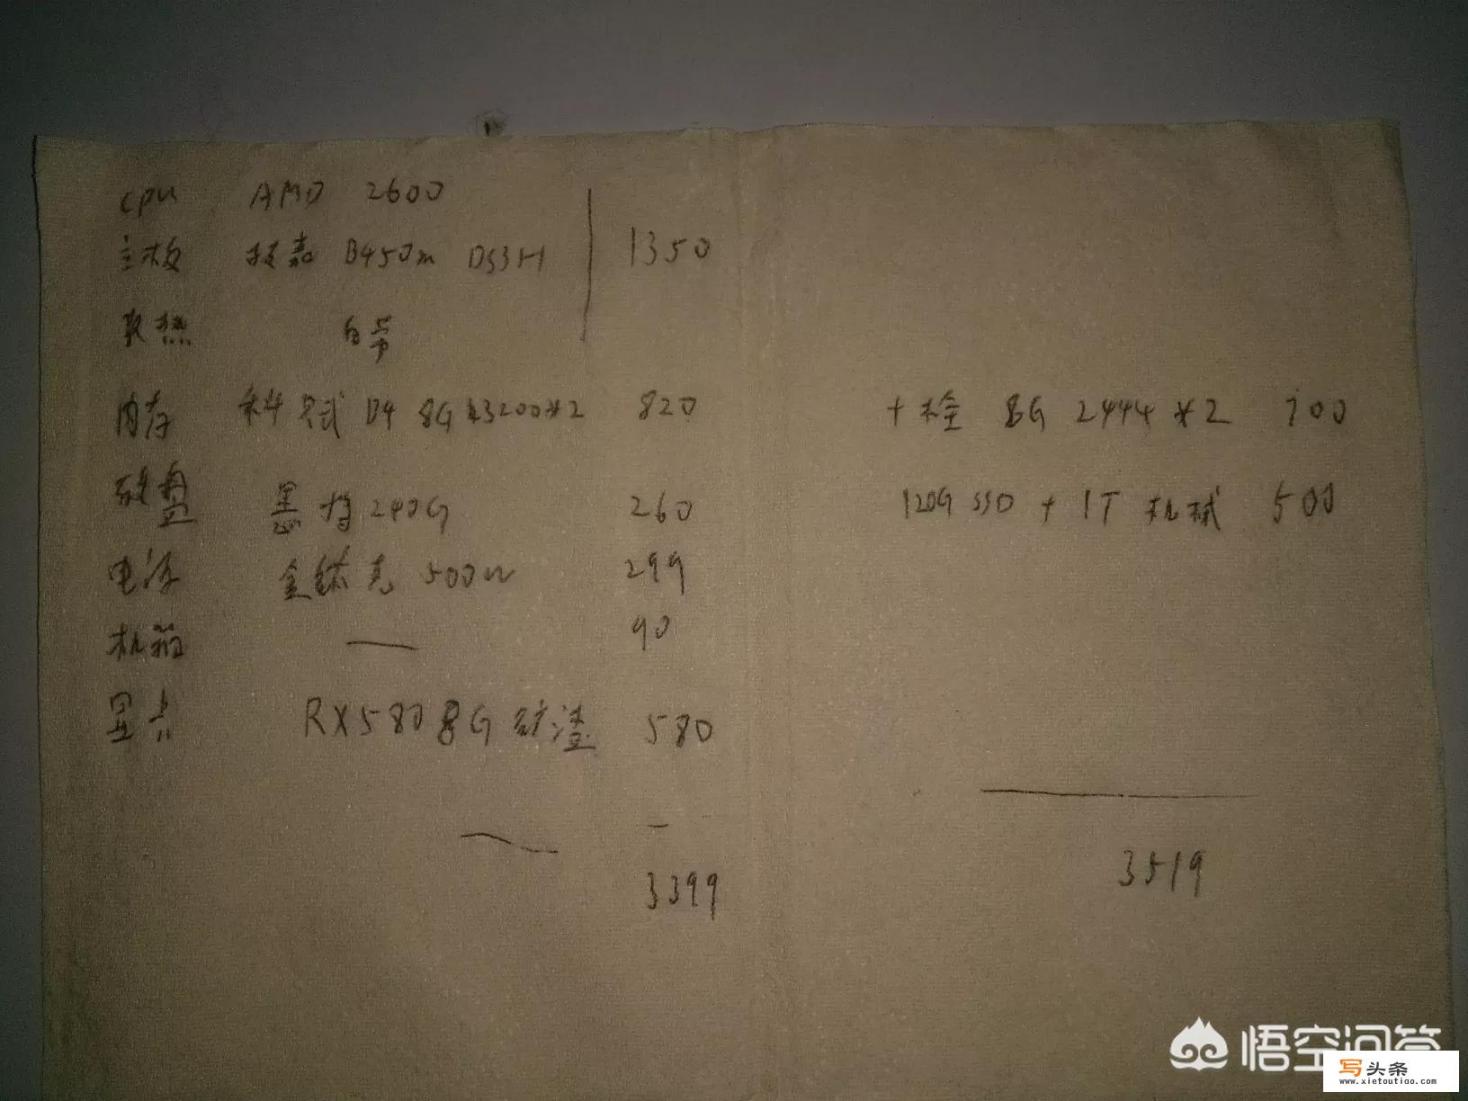 CPU AMD 2600
主板 技嘉 B450m DS3H 1350
散热 自带
内存 科赋 D4 8G 3200*2 820 十铨 8G 2444*2 700
硬盘 240G 260 120G SSD + 1T 机械 500
电源 金钛克 500W 299
机箱 — 90
显卡 RX580 8G 矿渣 580
3399 3519
悟空问答
写头条
www.xietoutiao.com